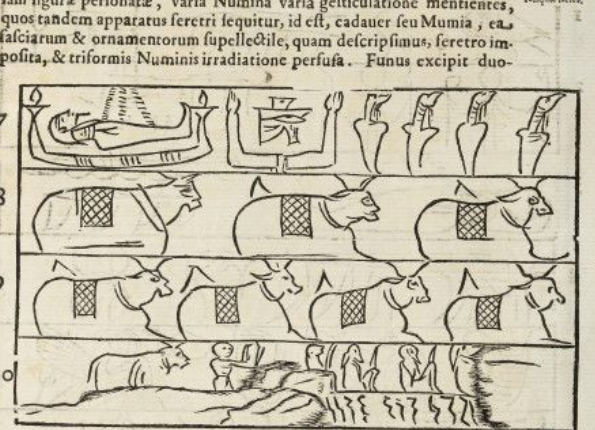 figuræ personatæ, varia Numina varia gesticulatione mentientes,
quos tandem apparatus feretri ſequitur, id eſt, cadauer ſeu Mumia, ea
faſciarum & ornamentorum ſupellectile, quam deſcripſimus, feretro im-
poſita, & triformis Numinis irradiatione perfuſa. Funus excipit duo-
7
8
9
0